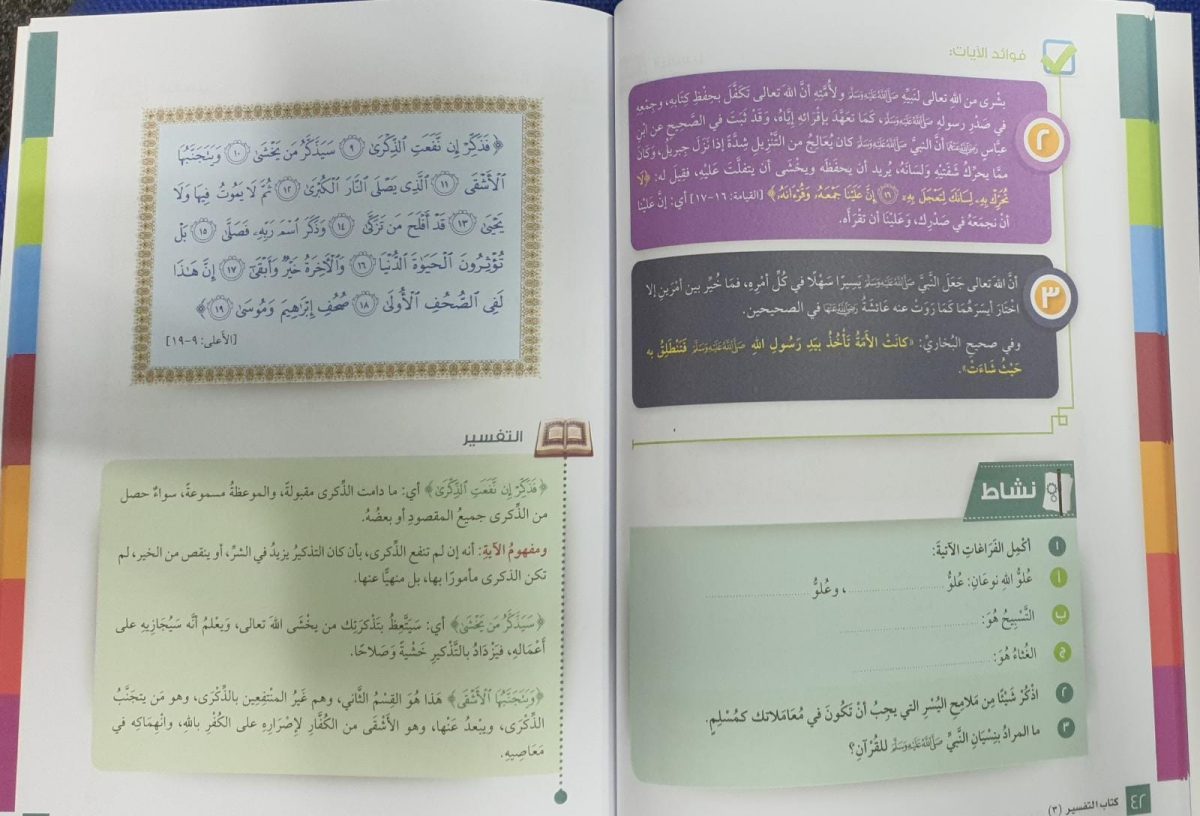 فوائد الآيات:
٢
بشرى من الله تعالى لنبيِّهِ ﷺ ولأمَّتِهِ أنَّ الله تعالى تكَفَّلَ بحِفْظِ كتابِهِ، وجمْعِهِ
في صَدْرِ رسولِهِ ﷺ، كَمَا تعَهَّدَ بإقرائِهِ إيَّاهُ، وَقَدْ ثبَتَ في الصَّحيحِ عن ابنِ
عبَّاسٍ رَضِيَ اللهُ عَنْهُمَا أنَّ النبيَّ ﷺ كانَ يُعَالِجُ من التَّنْزِيلِ شِدَّةً إذا نَزَلَ جبريلُ، وَكَانَ
ممَّا يحرِّكُ شَفَتَيْهِ وَلسَانَهُ، يُريد أن يحفظَه ويخْشَى أن يتفلَّتَ عليْهِ، فقيلَ له: ﴿لَا
تُحَرِّكْ بِهِۦ لِسَانَكَ لِتَعْجَلَ بِهِۦ ١٦ إِنَّ عَلَيْنَا جَمْعَهُۥ وَقُرْءَانَهُۥ﴾ [القيامة: ١٦-١٧] أي: إنَّ عَلَيْنَا
أنْ نجمَعَهُ في صَدْرِك، وَعَليْنَا أن تقْرَأَه.
٣
أنَّ اللهَ تعالى جَعَلَ النَّبيَّ ﷺ يَسِيرًا سَهْلًا في كُلِّ أمْرِهِ، فمَا خُيِّر بين أمْرَينِ إلا
اختَارَ أيسَرَهُمَا كَمَا رَوَتْ عنه عَائشَةُ رَضِيَ اللهُ عَنْهَا في الصحيحين.
وفي صحيحِ البُخَاريِّ: «كَانَتْ الأَمَةُ تَأْخُذُ بِيَدِ رَسُولِ اللهِ ﷺ فَتَنْطَلِقُ به
حَيْثُ شَاءَتْ».
نشاط
١ أكْمِلِ الفَرَاغاتِ الآتيةَ:
أ عُلوُّ اللهِ نوعَانِ: عُلوُّ ....................، وعُلوُّ ....................
ب التَّسْبِيحُ هُوَ: ....................
ج الغُثاءُ هُوَ: ....................
٢ اذْكُرْ شَيْئًا مِن مَلامِحِ اليُسْرِ التي يجِبُ أنْ تَكُونَ في مُعَامَلاتك كَمُسْلِمٍ.
٣ ما المرادُ بِنِسْيَانِ النَّبيِّ ﷺ للقُرْآنِ؟
٤٢ كتاب التفسير (٣)
﴿فَذَكِّرْ إِن نَّفَعَتِ ٱلذِّكْرَىٰ ٩ سَيَذَّكَّرُ مَن يَخْشَىٰ ١٠ وَيَتَجَنَّبُهَا
ٱلْأَشْقَى ١١ ٱلَّذِى يَصْلَى ٱلنَّارَ ٱلْكُبْرَىٰ ١٢ ثُمَّ لَا يَمُوتُ فِيهَا وَلَا
يَحْيَىٰ ١٣ قَدْ أَفْلَحَ مَن تَزَكَّىٰ ١٤ وَذَكَرَ ٱسْمَ رَبِّهِۦ فَصَلَّىٰ ١٥ بَلْ
تُؤْثِرُونَ ٱلْحَيَوٰةَ ٱلدُّنْيَا ١٦ وَٱلْءَاخِرَةُ خَيْرٌ وَأَبْقَىٰٓ ١٧ إِنَّ هَٰذَا
لَفِى ٱلصُّحُفِ ٱلْأُولَىٰ ١٨ صُحُفِ إِبْرَٰهِيمَ وَمُوسَىٰ ١٩﴾
[الأعلى: ٩-١٩]
التفسير
﴿فَذَكِّرْ إِن نَّفَعَتِ ٱلذِّكْرَىٰ﴾ أي: ما دامت الذِّكرى مقبولةً، والموعظةُ مسموعةً، سواءٌ حصل
من الذِّكرى جميعُ المقصودِ أو بعضُهُ.
ومفهومُ الآيةِ: أنه إن لم تنفع الذِّكرى، بأن كان التذكيرُ يزيدُ في الشرِّ، أو ينقص من الخير، لم
تكن الذكرى مأمورًا بها، بل منهيًّا عنها.
﴿سَيَذَّكَّرُ مَن يَخْشَىٰ﴾ أي: سَيَتَّعِظُ بتَذْكرَتِك من يخْشَى اللهَ تعالى، وَيعْلمُ أنَّه سَيُجَازِيهِ على
أعْمَالهِ، فيَزْدَادُ بالتَّذْكيرِ خَشْيةً وَصَلاحًا.
﴿وَيَتَجَنَّبُهَا ٱلْأَشْقَى﴾ هَذا هُوَ القِسْمُ الثَّاني، وهم غَيْرُ المنْتفِعِين بالذِّكْرَى، وهو مَن يتجَنَّبُ
الذِّكْرَى، ويبْعدُ عَنْها، وهو الأشْقَى من الكُفَّارِ لإصْرَارِهِ على الكُفْرِ باللهِ، وانْهمَاكِهِ في
مَعَاصِيهِ.